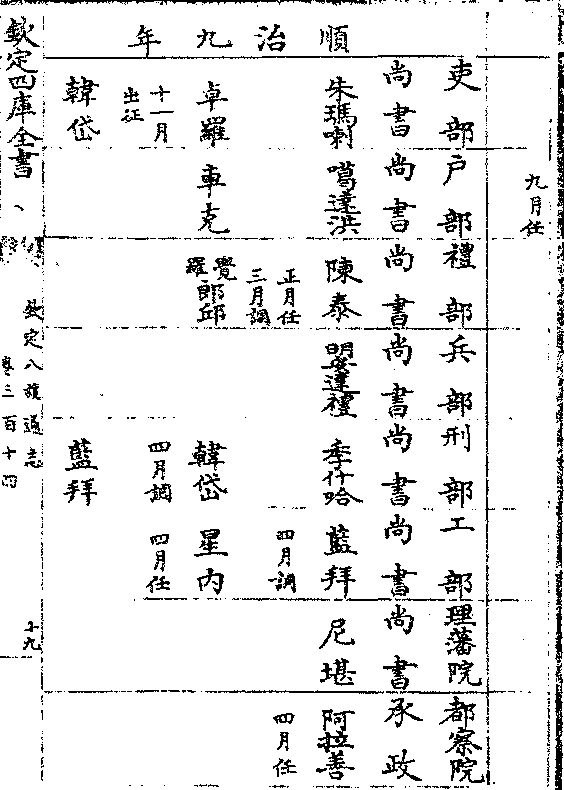 九月任
順治九年
吏部 戶部 禮部 兵部 刑部 工部 理藩院 都察院
尚書 尚書 尚書 尚書 尚書 尚書 尚書 承政
朱瑪喇 噶達洪 陳泰 明安達禮 季什哈 藍拜 尼堪 阿拉善
正月任 四月調 四月任
三月調
卓羅 車克 覺羅郎邱 韓岱 星內
十一月 四月調 四月任
出征
韓岱 藍拜
欽定四庫全書
欽定八旗通志
卷三百十四
十九